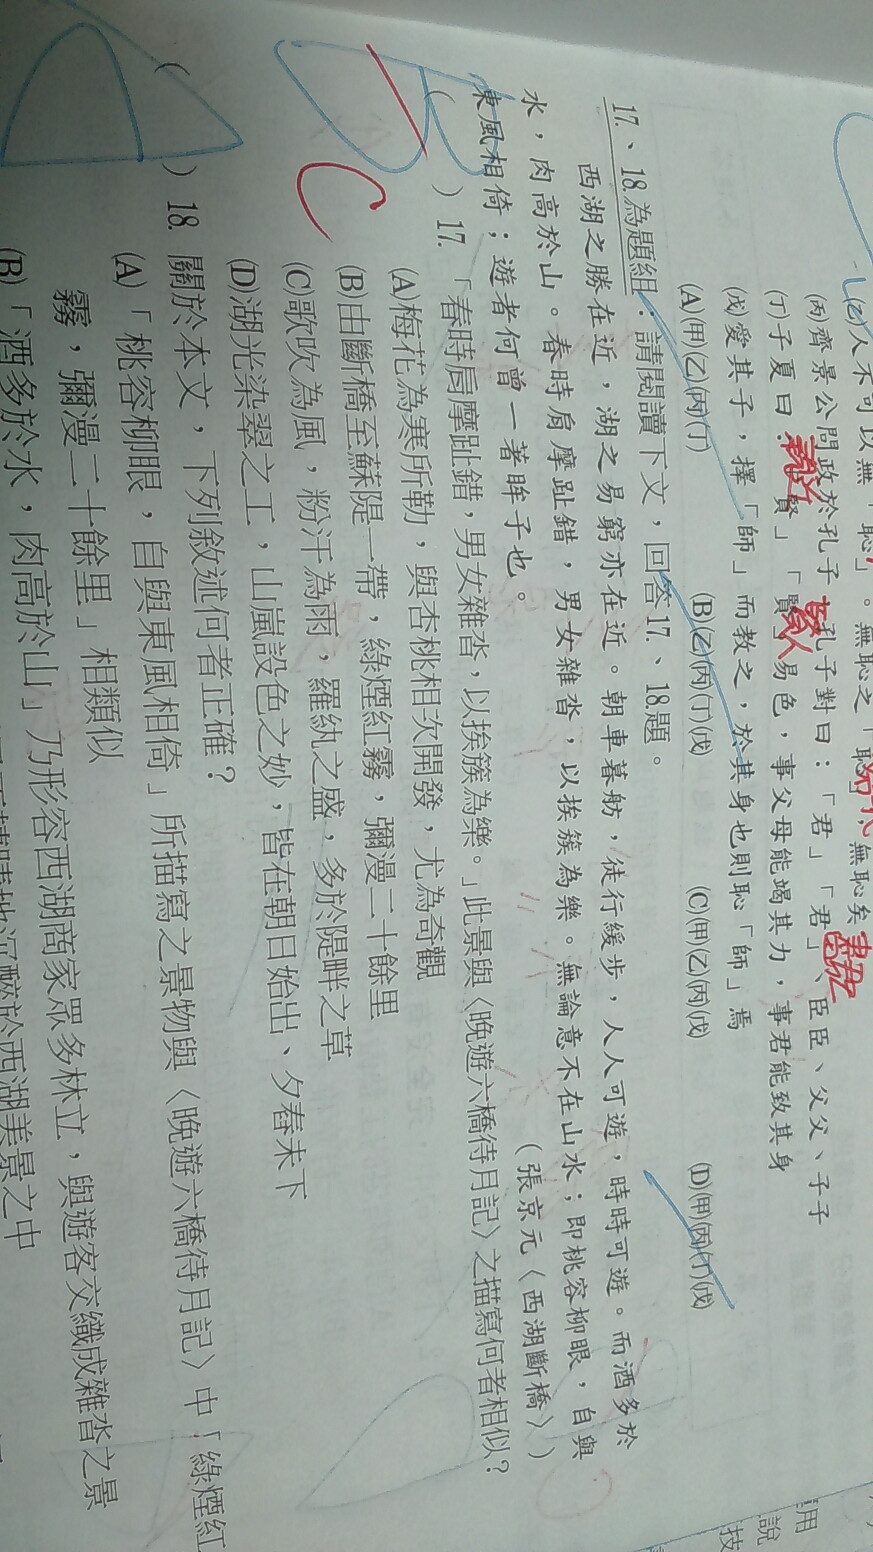 (乙)人不可以無「恥」。無恥之「恥」，無恥矣
(丙)齊景公問政於孔子，孔子對曰：「君」「君」、臣臣、父父、子子
(丁)子夏曰：「賢」「賢」易色，事父母能竭其力，事君能致其身
(戊)愛其子，擇「師」而教之，於其身也則恥「師」焉
(A)(甲)(乙)(丙)(丁) (B)(乙)(丙)(丁)(戊) (C)(甲)(乙)(丙)(戊) (D)(甲)(丙)(丁)(戊)
17.、18.為題組：請閱讀下文，回答17.、18.題。
西湖之勝在近，湖之易窮亦在近。朝車暮舫，徒行緩步，人人可遊，時時可遊。而酒多於
水，肉高於山。春時肩摩趾錯，男女雜沓，以挨簇為樂。無論意不在山水；即桃容柳眼，自與
東風相倚；遊者何曾一著眸子也。 （張京元〈西湖斷橋〉）
( )17.「春時肩摩趾錯，男女雜沓，以挨簇為樂。」此景與〈晚遊六橋待月記〉之描寫何者相似？
C
(A)梅花為寒所勒，與杏桃相次開發，尤為奇觀
(B)由斷橋至蘇隄一帶，綠煙紅霧，彌漫二十餘里
(C)歌吹為風，粉汗為雨，羅紈之盛，多於隄畔之草
(D)湖光染翠之工，山嵐設色之妙，皆在朝日始出、夕舂未下
( )18.關於本文，下列敘述何者正確？
(A)「桃容柳眼，自與東風相倚」所描寫之景物與〈晚遊六橋待月記〉中「綠煙紅
霧，彌漫二十餘里」相類似
(B)「酒多於水，肉高於山」乃形容西湖商家眾多林立，與遊客交織成雜沓之景
沉醉於西湖美景之中
用
說
技